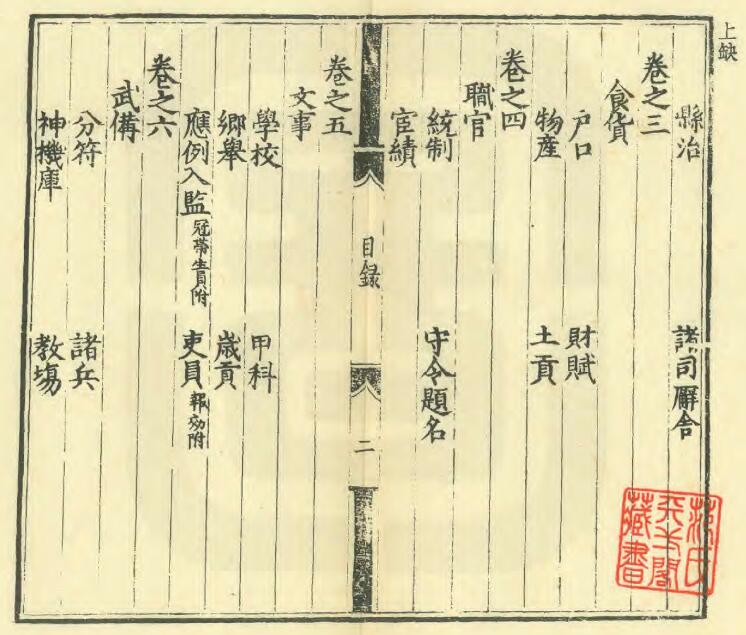 上缺
縣治 諸司廨舍
卷之三
食貨
戶口 財賦
物產 土貢
卷之四
職官
統制 守令題名
宦績
目録
二
卷之五
文事
學校 甲科
鄉舉 歲貢
應例入監冠帶生員附 吏員報効附
卷之六
武備
分符 諸兵
神機庫 教塲
范氏天一閣藏書